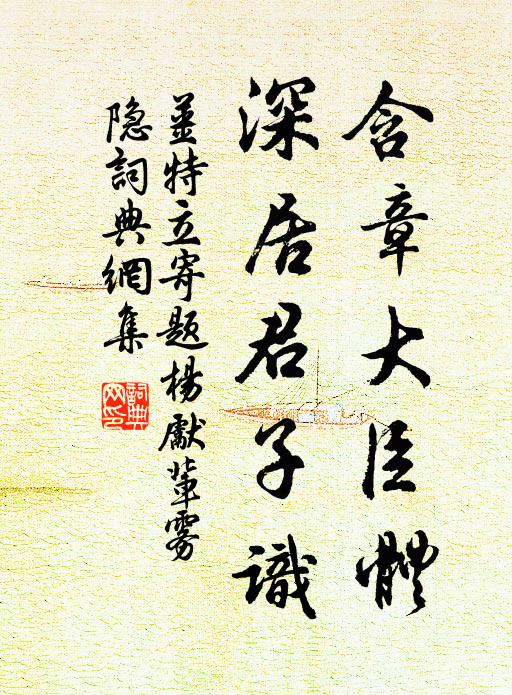 含章大臣體
深居君子識
姜特立寄題楊獻輦霧
隐詞典網集
詞典
网印